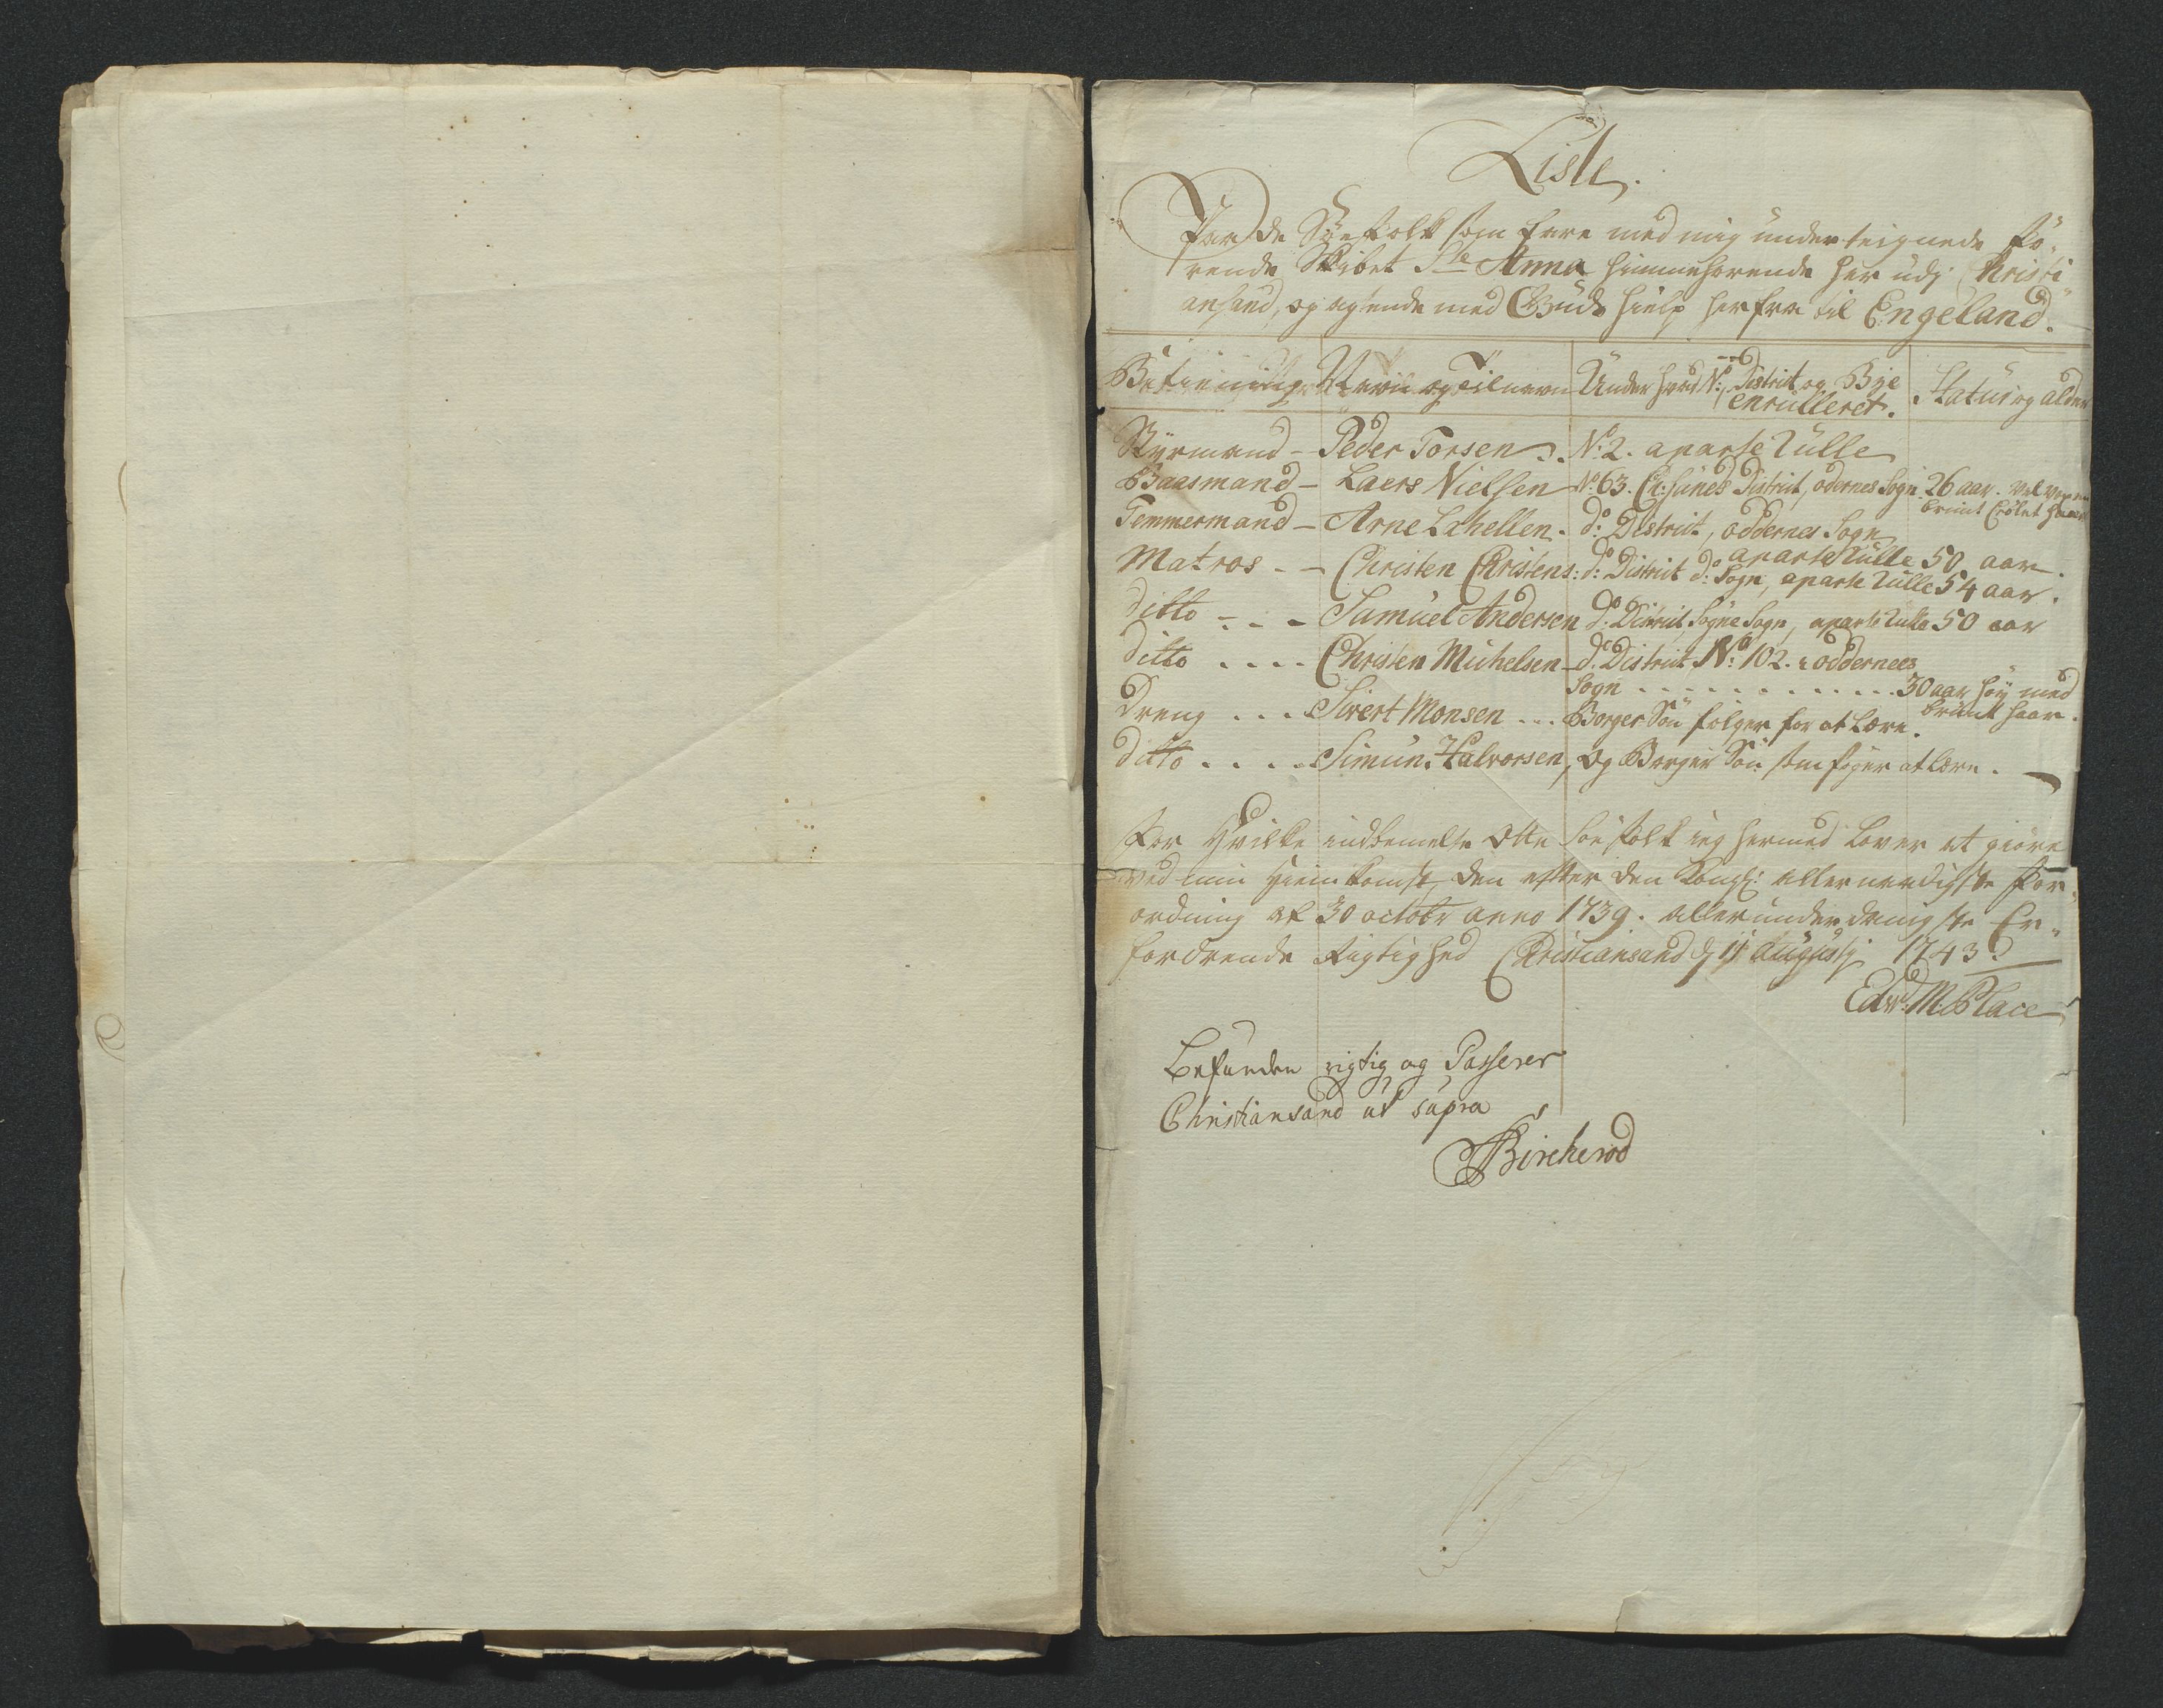 Liste.
Paa de Söefolk som fare med mig underteignede fö-
rende Skibet Ste Anna himmehörende her udj Christi-
ansand, og agtende med Guds hielp herfra til Engeland.
Betiening Navn og Tilnavn Under hvad No: District og Bye Statur og alder
enrulleret.
Styrmand - Peder Torsen No: 2. aparte Rulle
Baasmand - Laers Nielsen No: 63. Ch:sands District, odernes Sogn. 26 aar. vel voxen
brunt Crölet haar
Temmermand - Arne Lahellen. do: District, oddernes Sogn
aparte Rulle 50 aar.
Matros - - Christen Christens: do: District do: Sogn, aparte Rulle 54 aar.
Ditto - - - Samuel Andersen do: District, Sögne Sogn, aparte Rulle 50 aar
ditto .... Christen Michelsen - do: District No: 102. oddernees
Sogn ............. 30 aar höy med
brunt haar.
Dreng ... Sivert Monsen ... Borger Sön fölger for at lære.
ditto .... Simun Halvorsen, og Borger Sön som fölger at lære.
For Hvilke indbemelte Otte Söefolk ieg hermed lover at giöre
ved min Hiemkomst, den efter den Kongl: allernaadigste For-
ordning af 30 octobr anno 1739. allerunderdanigste Er-
fordrende Rigtighed Christiansand d 11 Augustj 1743.
Edvd: M: Place
Befunden rigtig og Passerer
Christiansand ut supra
Bircherod